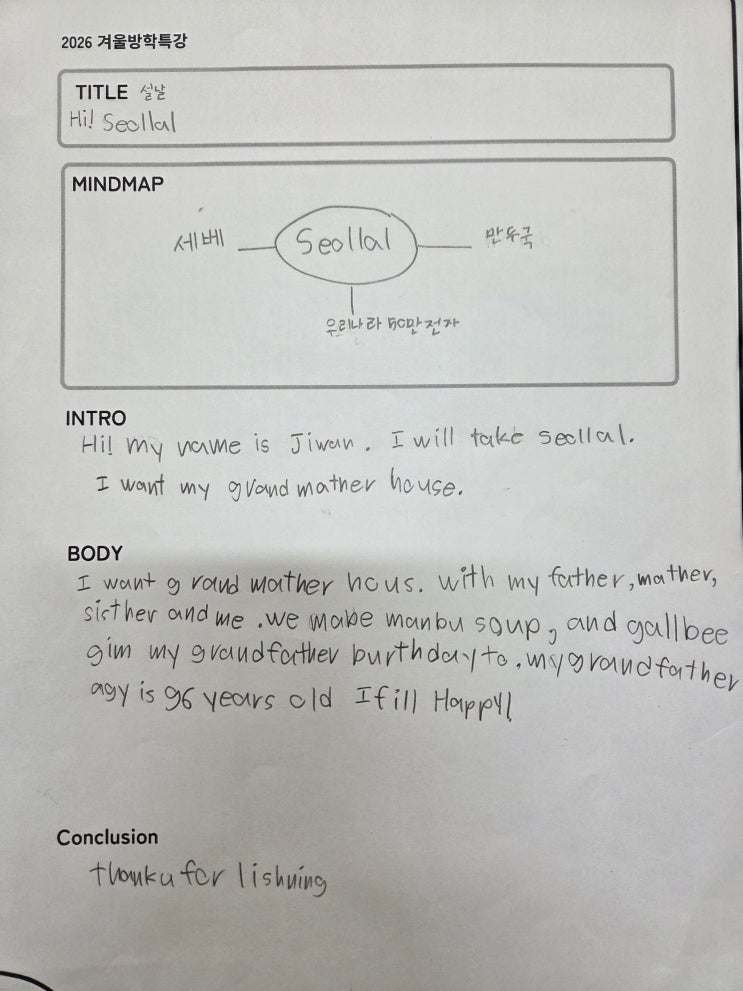 2026 겨울방학특강
TITLE 설날
Hi! Seollal
MINDMAP
세베
Seollal
만두국
우리나라 50만전자
INTRO
Hi! my name is Jiwan. I will take seollal.
I want my grand mather house.
BODY
I want grand mather hous. with my father, mather,
sicther and me. we make manbu soup, and gallbee
gim my grandfather burthday to. my grandfather
agy is 96 years old I fill Happy!
Conclusion
thank u for lishning